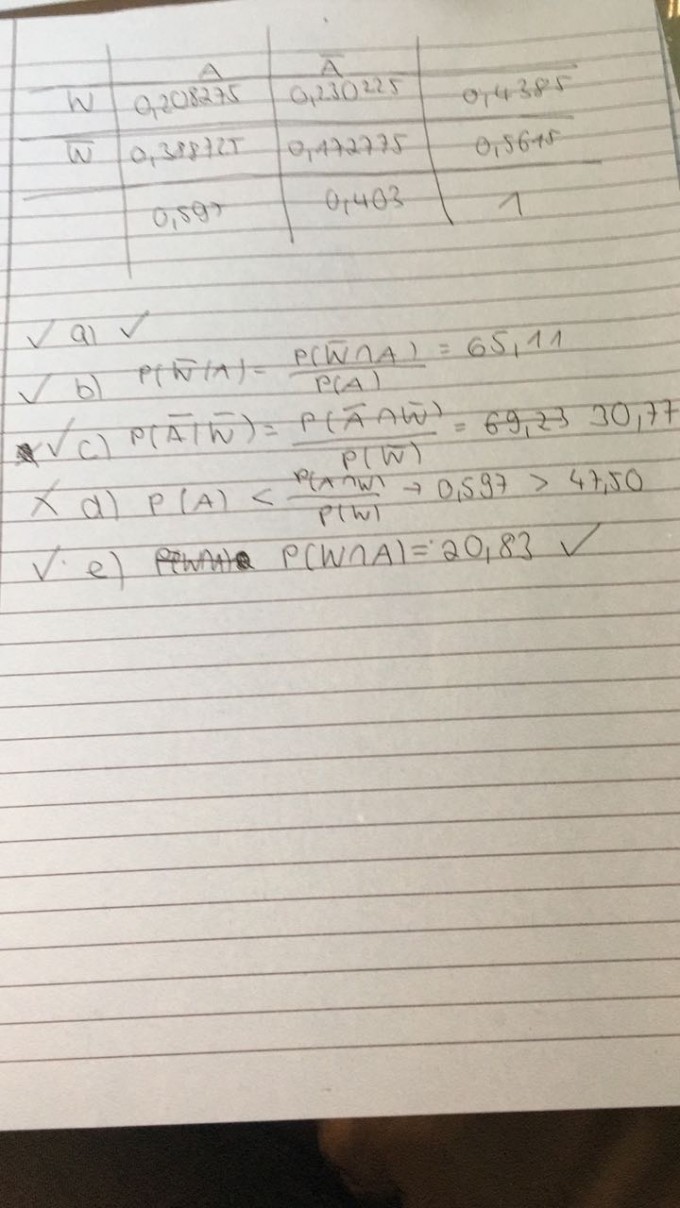 A Ā
W 0,208275 0,230225 0,4385
W̅ 0,388725 0,172775 0,5615
0,597 0,403 1
✓ a) ✓
✓ b) P(W̅|A) = P(W̅∩A)/P(A) = 65,11
✓ c) P(Ā|W̅) = P(Ā∩W̅)/P(W̅) = 69,23 30,77
X d) P(A) < P(A∩W)/P(W) → 0,597 > 47,50
✓ e) P(W∩A) = 20,83 ✓